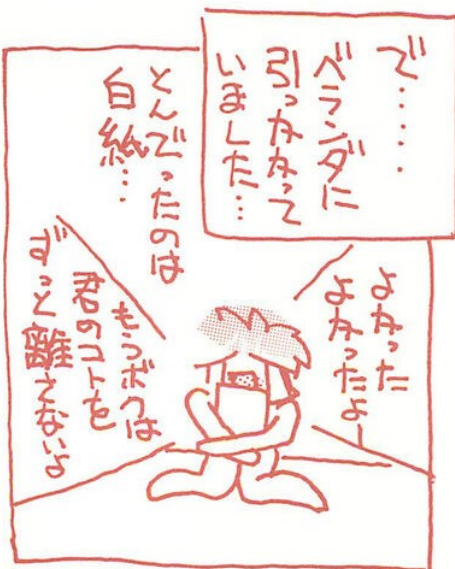 で‥‥‥
ベランダに
引っかかって
いました…
とんでったのは
白紙…
よかった
よかったよー
もうボクは
君のコトを
ずっと離さないよ